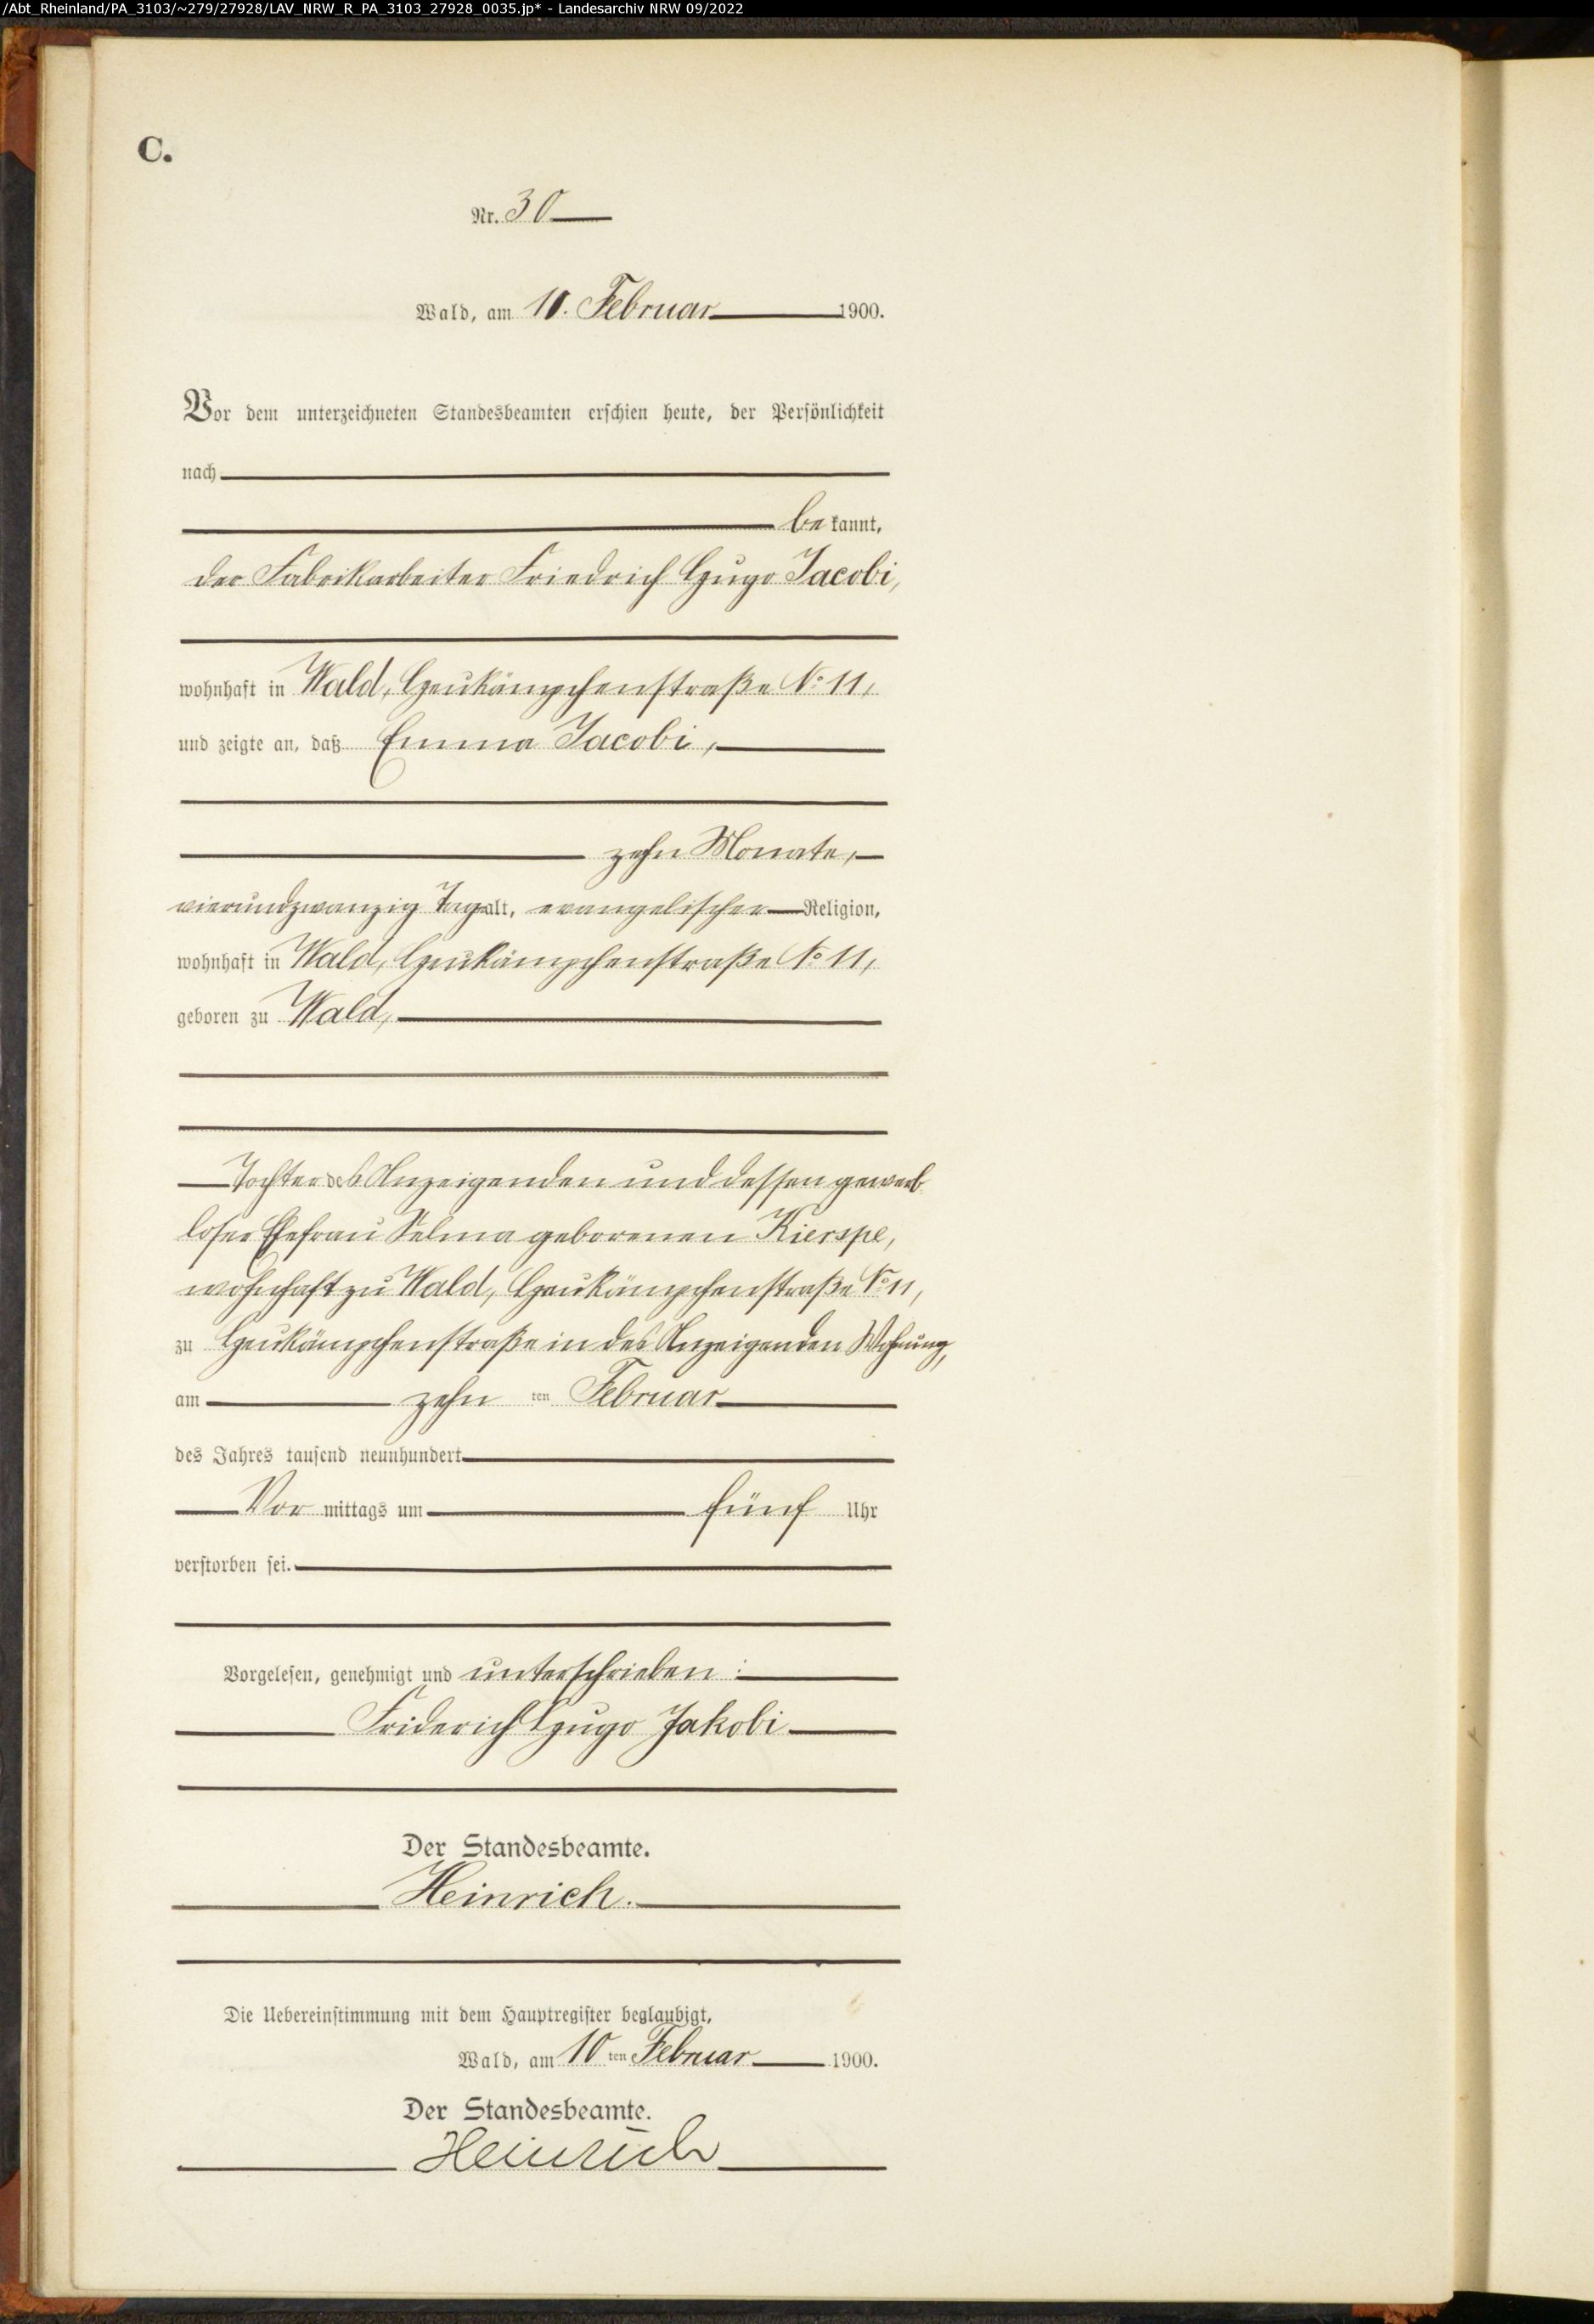 /Abt_Rheinland/PA_3103/~279/27928/LAV_NRW_R_PA_3103_27928_0035.jp* - Landesarchiv NRW 09/2022
C.
Nr. 30
Wald, am 10. Februar 1900.
Vor dem unterzeichneten Standesbeamten erschien heute, der Persönlichkeit
nach
be kannt,
der Fabrikarbeiter Friedrich Hugo Jacobi,
wohnhaft in Wald, Heukämpchenstraße No 11,
und zeigte an, daß Emma Jacobi,
zehn Monate,
vierundzwanzig Tage alt, evangelischer Religion,
wohnhaft in Wald, Heukämpchenstraße No 11,
geboren zu Wald,
Tochter des Anzeigenden und dessen gewerb
loser Ehefrau Selma geborenen Kierspe,
wohnhaft zu Wald, Heukämpchenstraße No 11,
zu Heukämpchenstraße in des Anzeigenden Wohnung,
am zehn ten Februar
des Jahres tausend neunhundert
Vor mittags um fünf Uhr
verstorben sei.
Vorgelesen, genehmigt und unterschrieben:
Friderich Hugo Jakobi
Der Standesbeamte.
Heinrich.
Die Uebereinstimmung mit dem Hauptregister beglaubigt,
Wald, am 10 ten Februar 1900.
Der Standesbeamte.
Heinrich